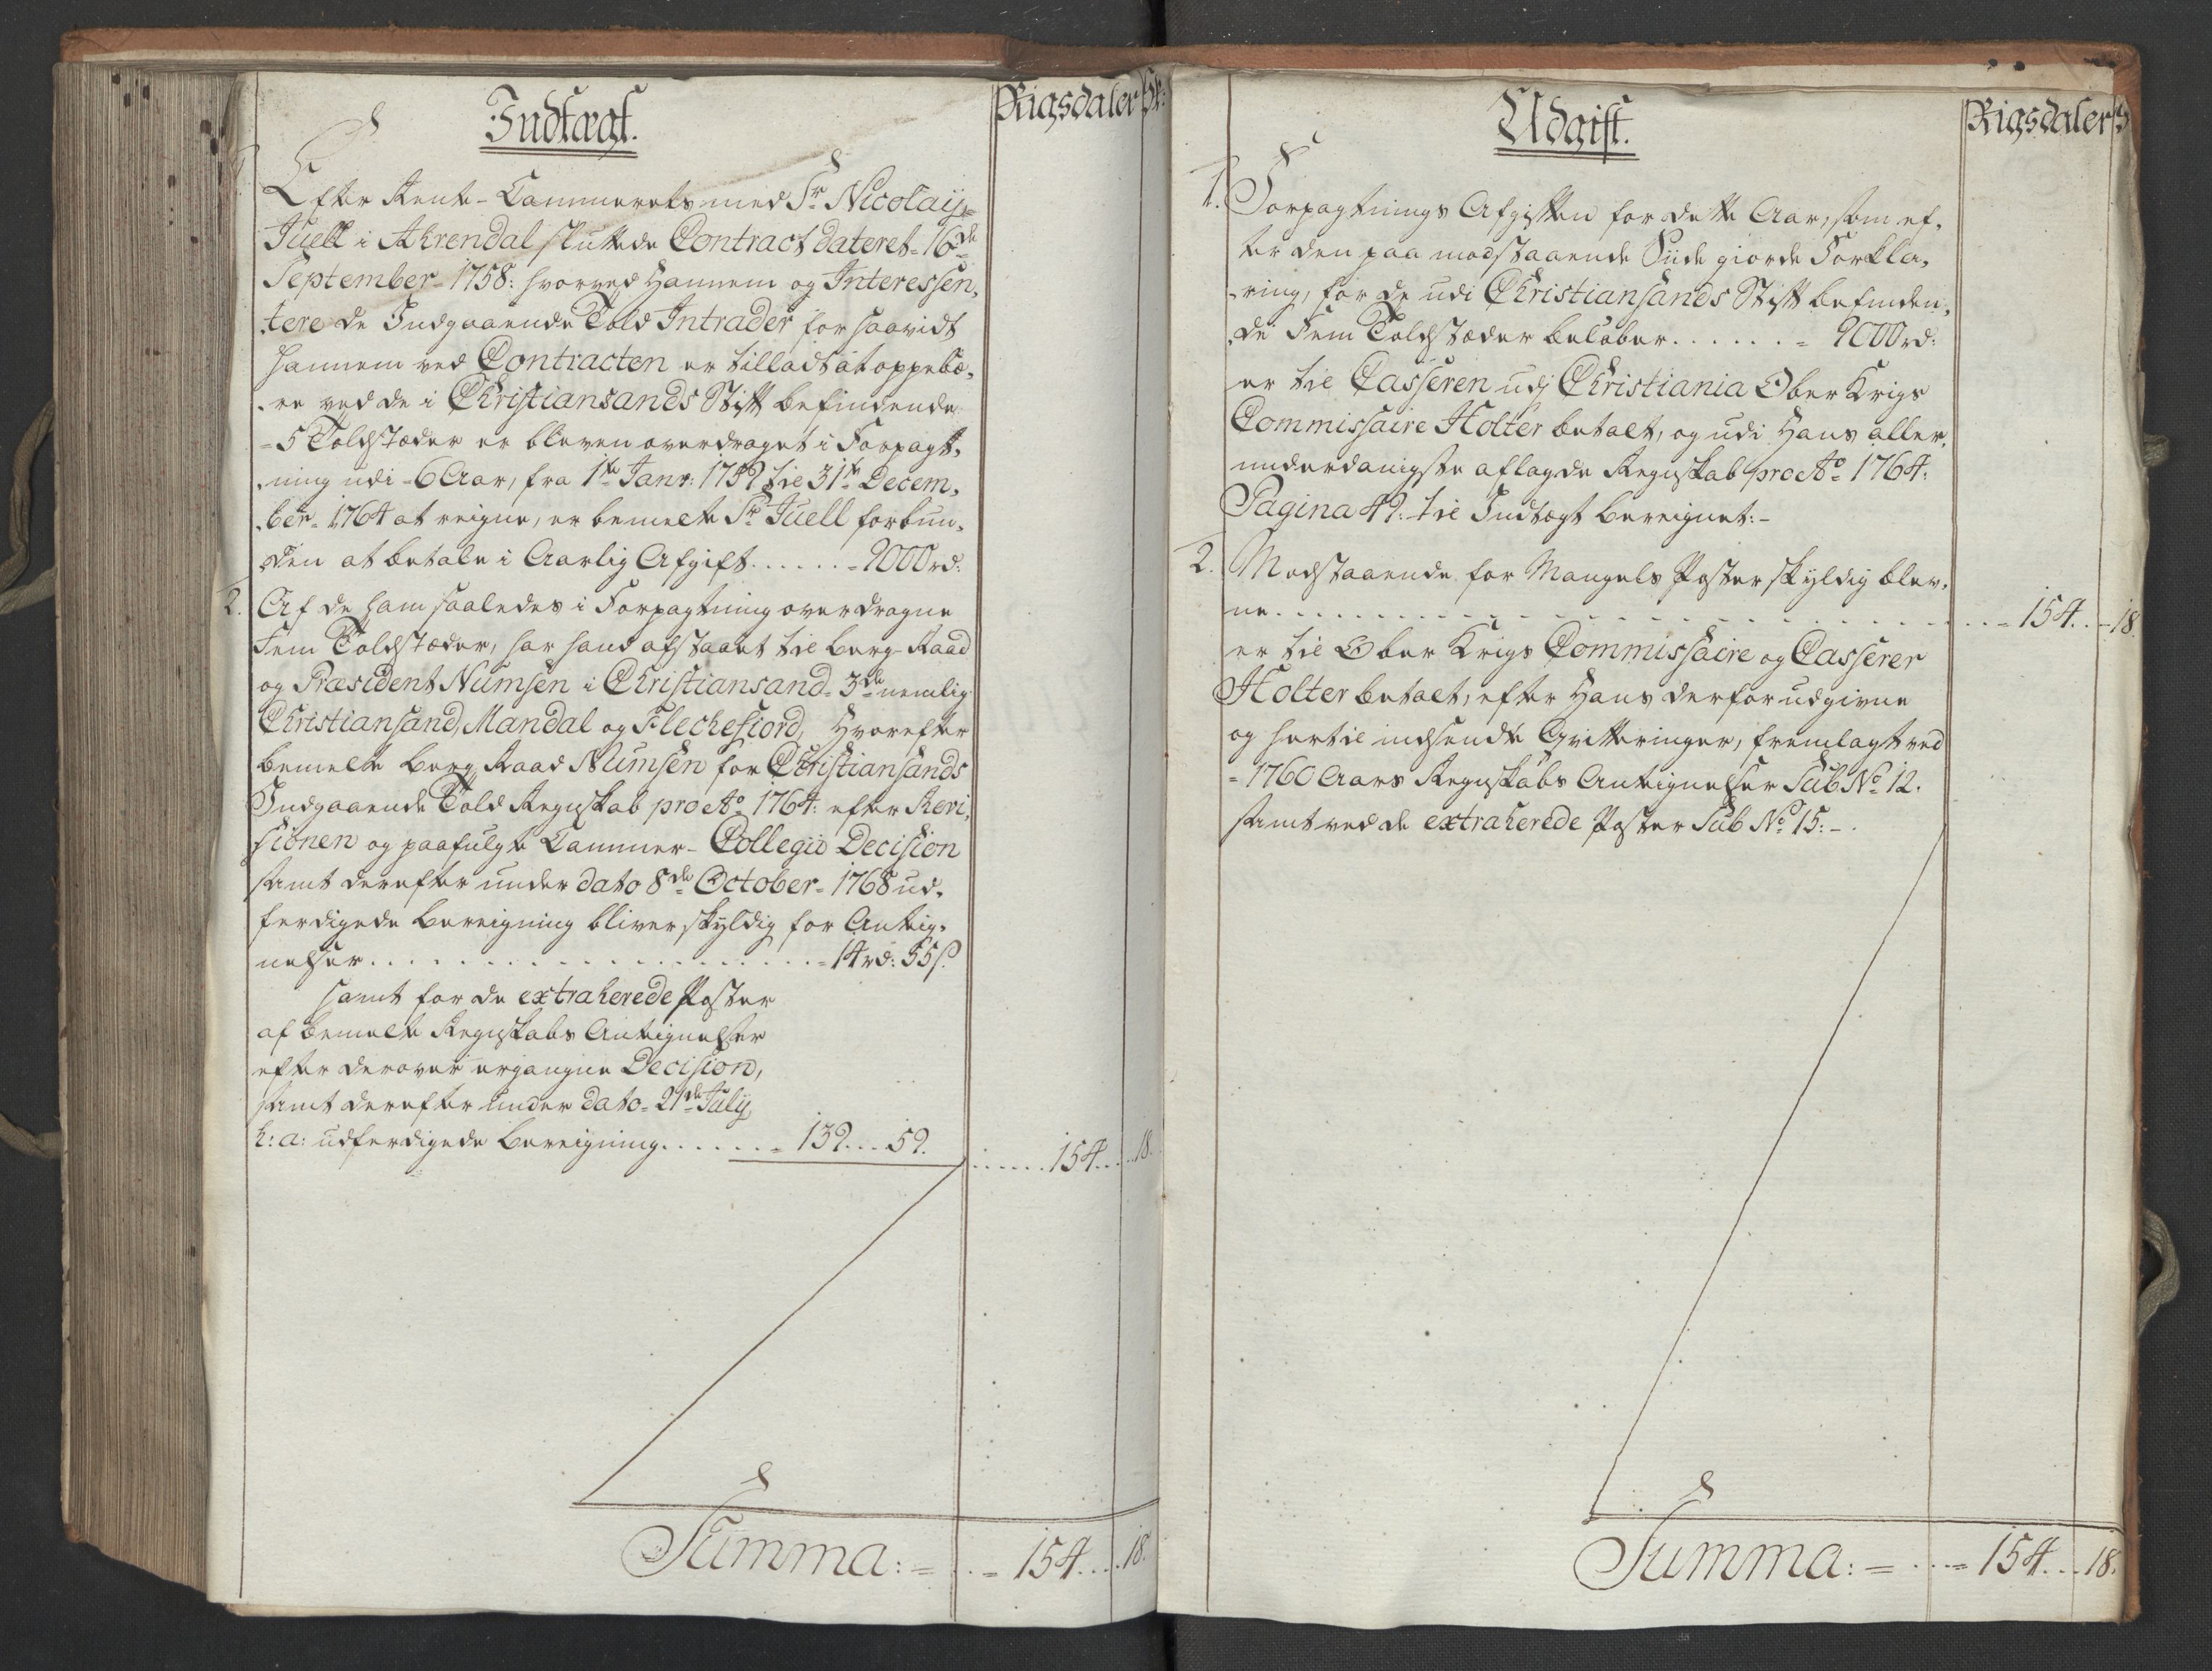 Indtægt.
Rigsdaler
1. Efter Rente-Cammerets med Sr. Nicolaij
Juell i Ahrendal sluttede Contract dateret 16de
September 1758: hvorved Hannem og Interessen-
tere de Indgaaende Told Intrader for saavidt
hannem ved Contracten er tilladt at oppebæ-
re ved de i Christiansands Stift befindende
5 Toldstæder er bleven overdraget i Forpagt-
ning udi 6 Aar, fra 1te Janr: 1759 til 31te Decem-
ber 1764 at reigne, er bemelte Sr. Juell forbun-
den at betale i Aarlig Afgift ...... 9000 rd:
2. Af de ham saaledes i Forpagtning overdragne
Fem Toldstæder, har hand afstaaet til Berg-Raad
og Præsident Numsen i Christiansand 3de nemlig
Christiansand, Mandal og Flechefiord, Hvorefter
bemelte Berg Raad Numsen for Christiansands
Indgaaende Told Regnskab pro Ao 1764: efter Revi-
sionen og paafulgte Cammer-Collegii Decision
samt derefter under dato 8de October 1768 ud-
ferdigede Bereigning bliver skyldig for Anteig-
nelser ...... 14 rd: 55 s.
samt for de extraherede Poster
af bemelte Regnskabs Anteignelser
efter derover ergangne Decision,
samt derefter under dato 21de Julij
h: a: udferdigede Bereigning ...... 139 ... 59. ...... 154 ... 18.
Summa: = 154 ... 18.
Udgift.
Rigsdaler
1. Forpagtnings Afgiften for dette Aar, som ef-
ter den paa modstaaende Side giorde Forkla-
ring, for de udi Christiansands Stift befinden-
de Fem Toldstæder beløber ...... 9000 rd:
er til Casseren udi Christiania Ober Krigs
Commissaire Holter betalt, og udi Hans aller-
underdanigste aflagde Regnskab pro Ao 1764:
Pagina 49: til Indtægt bereignet: -
2. Modstaaende for Mangels Poster skyldig blev-
ne ...... 154 ... 18.
er til Ober Krigs Commissaire og Casserer
Holter betalt, efter Hans derfor udgivne
og hertil indsendte Qvitteringer, fremlagt ved
1760 Aars Regnskabs Anteignelser Sub No 12.
samt ved de extraherede Poster Sub No 15: -
Summa: = 154 ... 18.